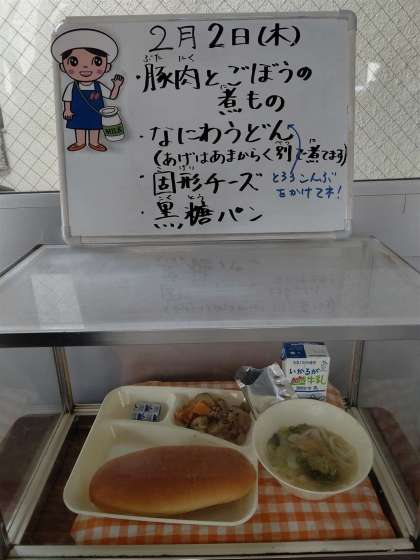 2月2日(木)
・豚肉とごぼうの
煮もの
・なにわうどん
(あげはあまからく別で煮てまる)
・固形チーズ
とろろこんぶ
をかけてネ!
・黒糖パン
MILK
いかるが
牛乳